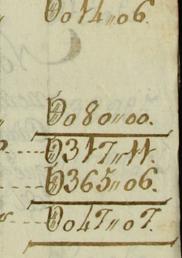 Ɖ014,,06.
Ɖ080,,00.
Ɖ317,,11.
Ɖ365,,06.
Ɖ047,,07.